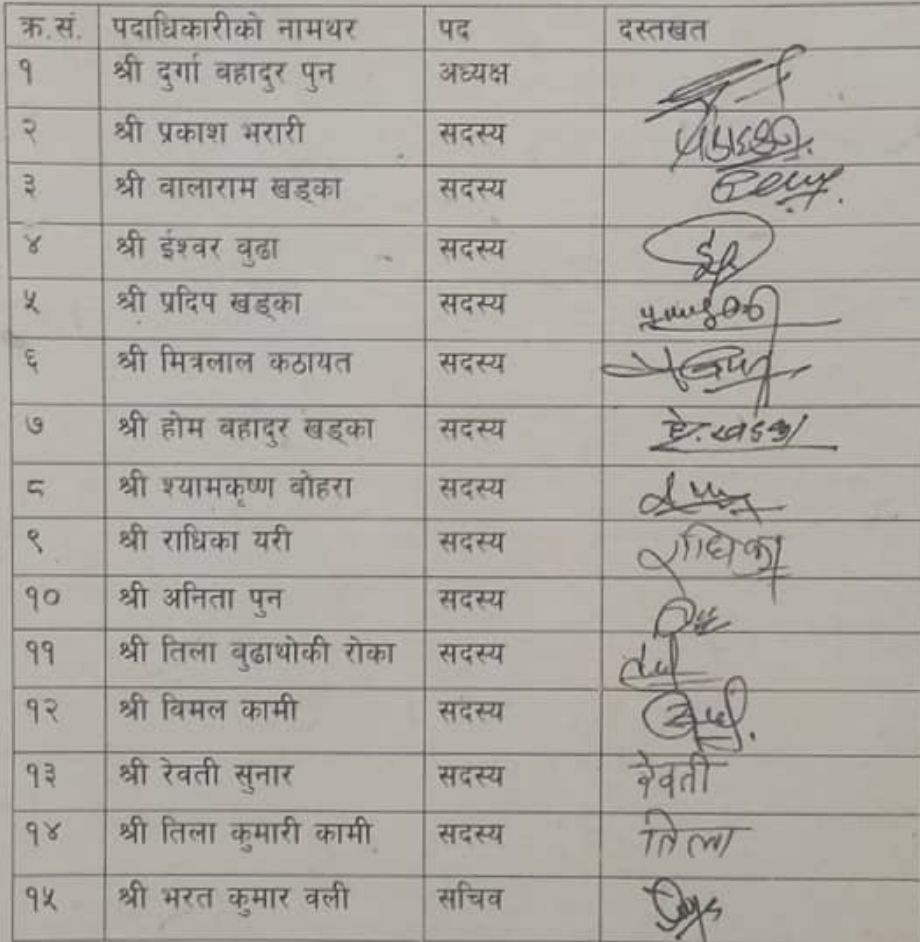 क्र.सं. पदाधिकारीको नामथर पद दस्तखत
१ श्री दुर्गा वहादुर पुन अध्यक्ष
२ श्री प्रकाश भरारी सदस्य
३ श्री वालाराम खड्का सदस्य
४ श्री ईश्वर वुढा सदस्य
५ श्री प्रदिप खड्का सदस्य
६ श्री मित्रलाल कठायत सदस्य
७ श्री होम वहादुर खड्का सदस्य
८ श्री श्यामकृष्ण वोहरा सदस्य
९ श्री राधिका यरी सदस्य राधिका
१० श्री अनिता पुन सदस्य
११ श्री तिला वुढाथोकी रोका सदस्य
१२ श्री विमल कामी सदस्य
१३ श्री रेवती सुनार सदस्य रेवती
१४ श्री तिला कुमारी कामी सदस्य तिला
१५ श्री भरत कुमार वली सचिव